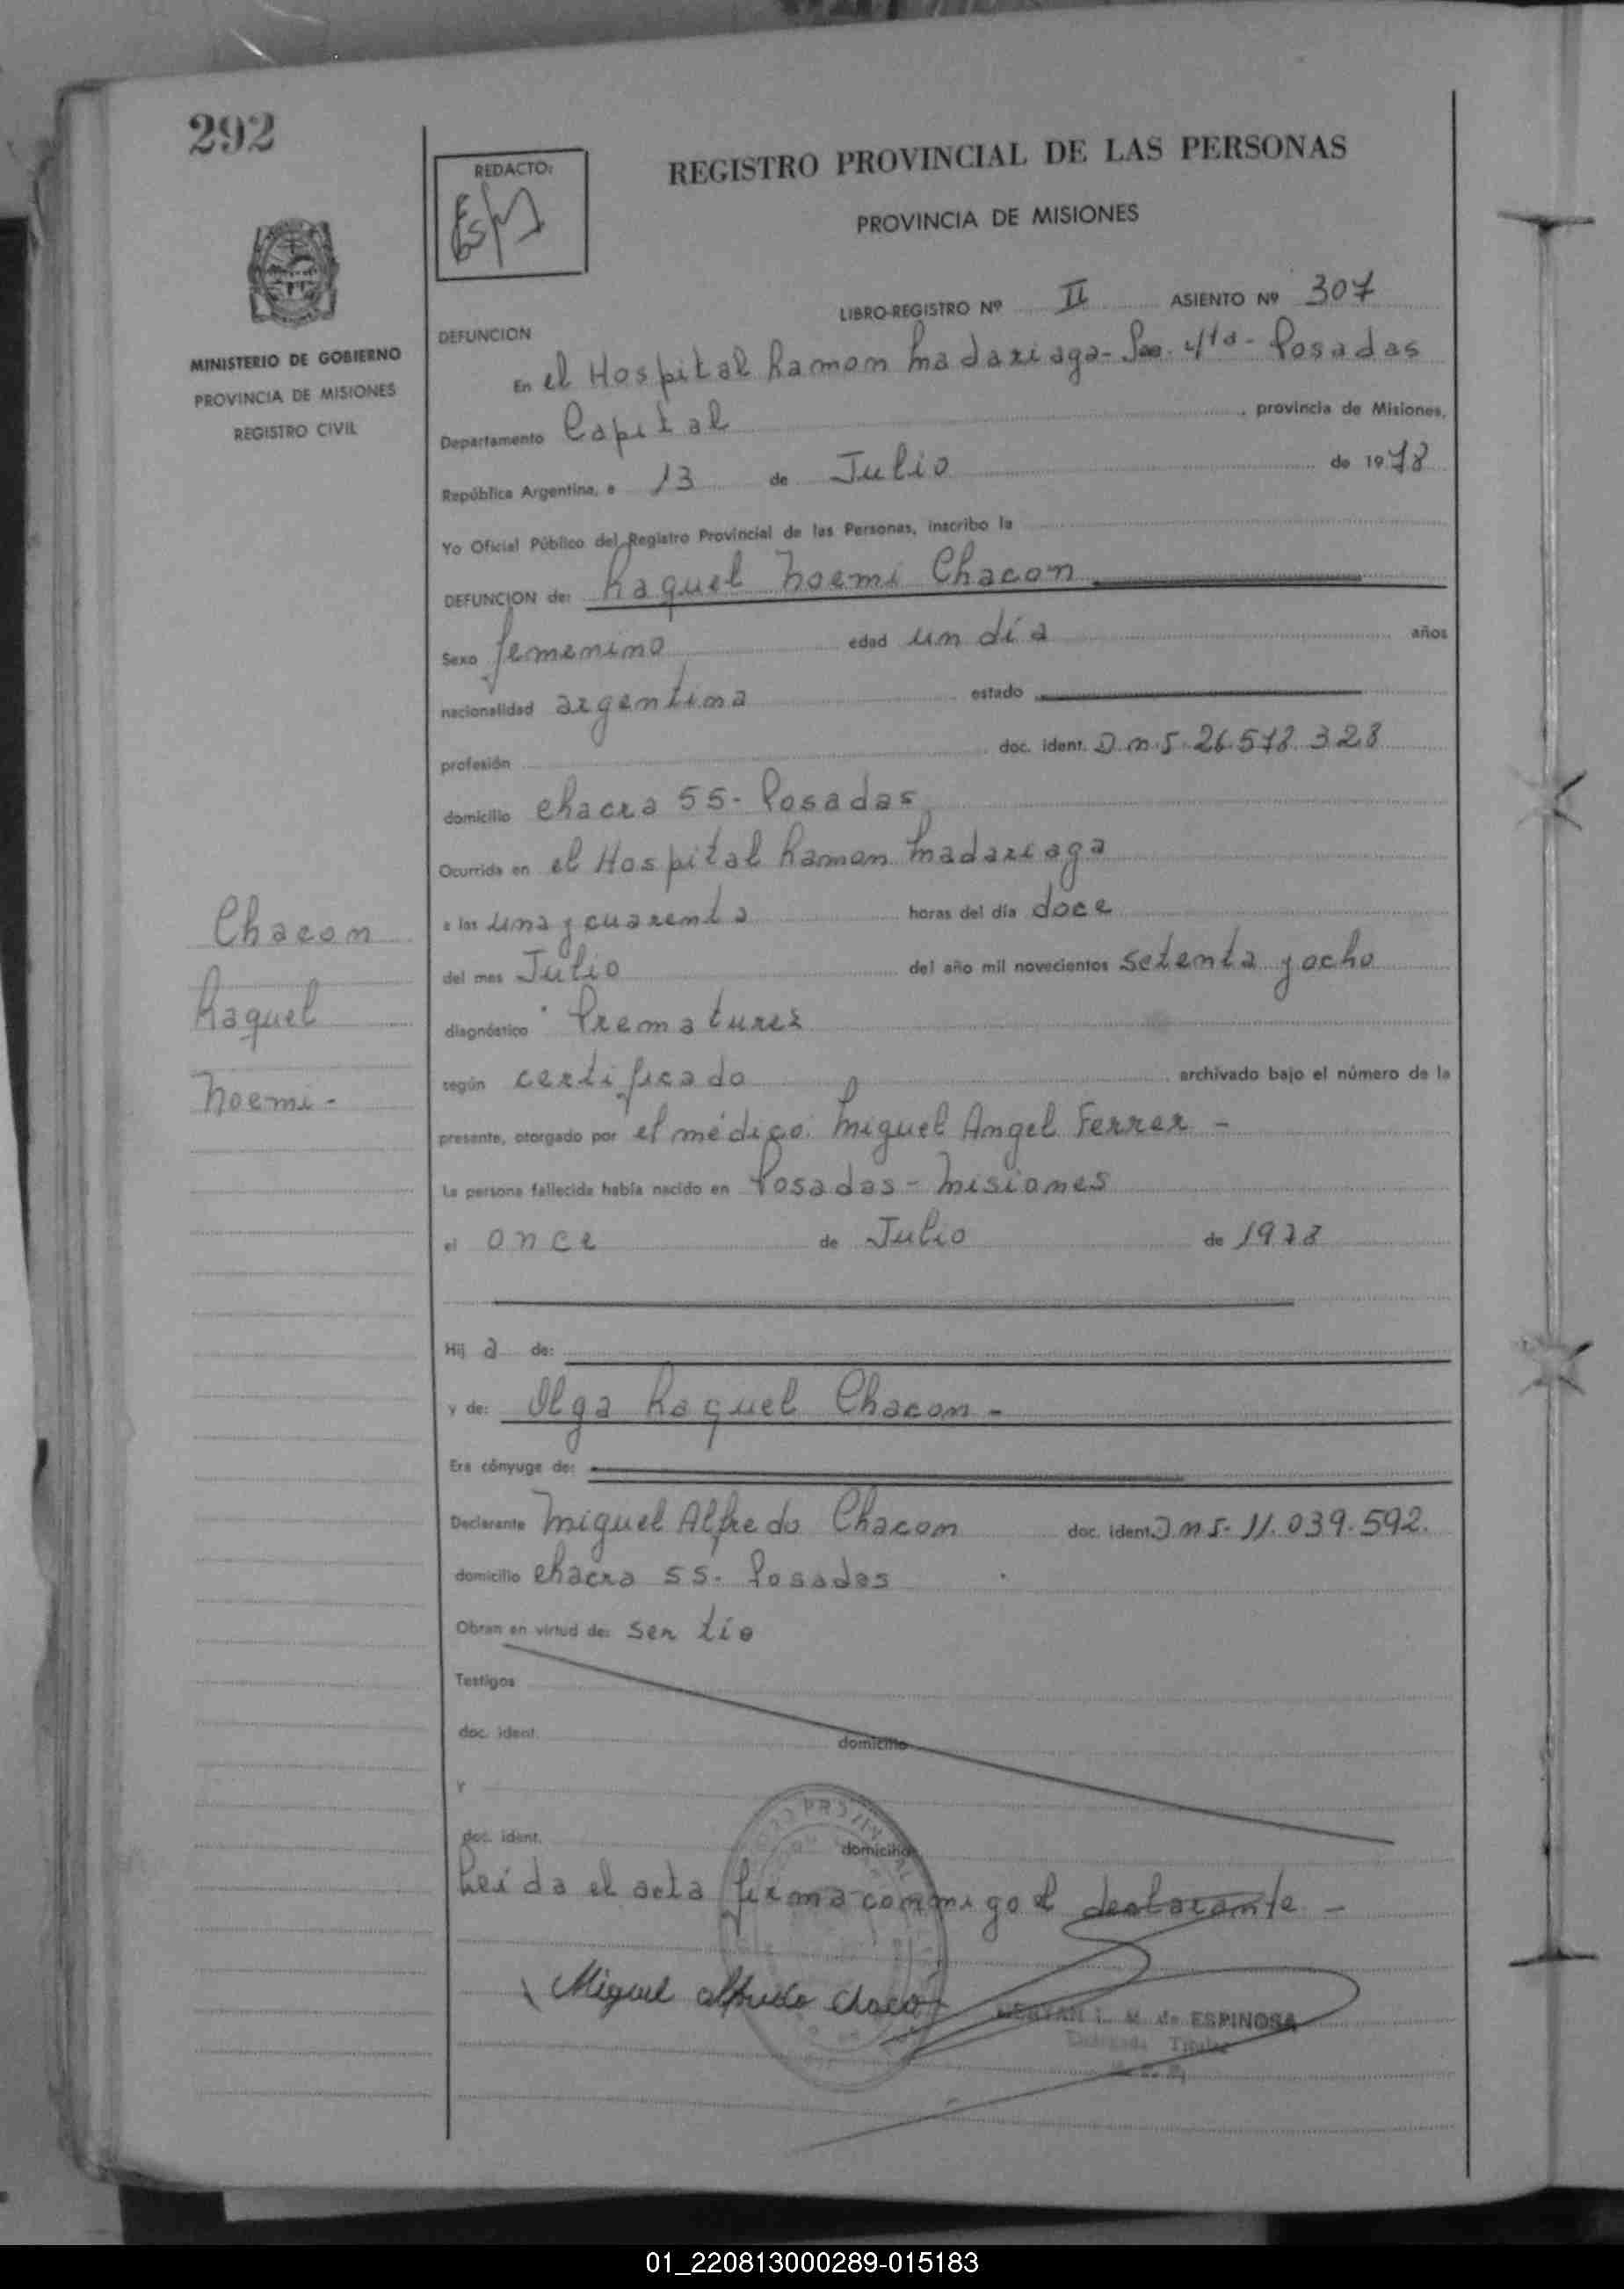 292
REDACTO:
REGISTRO PROVINCIAL DE LAS PERSONAS
PROVINCIA DE MISIONES
MINISTERIO DE GOBIERNO
PROVINCIA DE MISIONES
REGISTRO CIVIL
LIBRO-REGISTRO Nº II ASIENTO Nº 307
DEFUNCION
En el Hospital Ramon Madariaga - 4ta - Posadas
Departamento Capital, provincia de Misiones,
República Argentina, a 13 de Julio de 1978
Yo Oficial Público del Registro Provincial de las Personas, inscribo la
DEFUNCION de: Raquel Noemi Chacon
Sexo femenino edad un día años
nacionalidad argentina estado
profesión doc. ident. D.N.I. 26.578.328
domicilio chacra 55 - Posadas
Ocurrida en el Hospital Ramon Madariaga
a las una y cuarenta horas del día doce
del mes Julio del año mil novecientos setenta y ocho
diagnóstico Prematurez
según certificado archivado bajo el número de la
presente, otorgado por el médico: Miguel Angel Ferrer -
La persona fallecida había nacido en Posadas - Misiones
el once de Julio de 1978
Chacon
Raquel
Noemi -
Hij a de:
y de: Olga Raquel Chacon -
Era cónyuge de:
Declarante Miguel Alfredo Chacon doc. ident. D.N.I. 11.039.592.
domicilio chacra 55 - Posadas
Obran en virtud de: ser tío
Testigos
doc. ident. domicilio
y
doc. ident. domicilio
Leída el acta firma conmigo el declarante -
Miguel Alfredo Chacon
L. M. de ESPINOSA
Delegada Titular
01_220813000289-015183